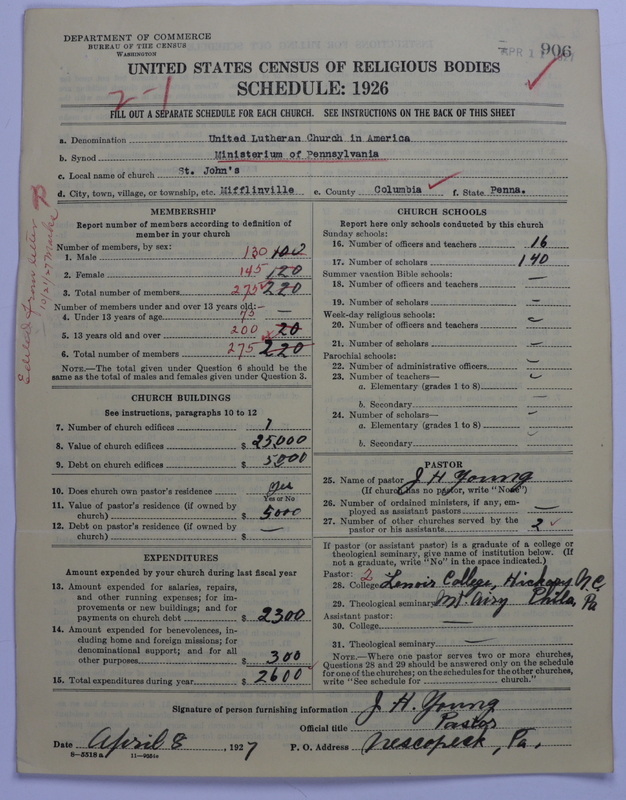 DEPARTMENT OF COMMERCE
BUREAU OF THE CENSUS
WASHINGTON
APR 1
906
UNITED STATES CENSUS OF RELIGIOUS BODIES
SCHEDULE: 1926
2-1
FILL OUT A SEPARATE SCHEDULE FOR EACH CHURCH. SEE INSTRUCTIONS ON THE BACK OF THIS SHEET
a. Denomination United Lutheran Church in America
b. Synod Ministerium of Pennsylvania
c. Local name of church St. John's
d. City, town, village, or township, etc. Mifflinville e. County Columbia f. State Penna.
MEMBERSHIP
Report number of members according to definition of member in your church
Number of members, by sex:
1. Male 130 100
2. Female 145 120
3. Total number of members 275 220
Number of members under and over 13 years old:—
4. Under 13 years of age 75 —
5. 13 years old and over 200 20
6. Total number of members 275 220
NOTE.—The total given under Question 6 should be
same as the total of males and females given under Question 3.
Edited from letter
10/21/27
CHURCH BUILDINGS
See instructions, paragraphs 10 to 12
7. Number of church edifices 1
8. Value of church edifices $ 25000
9. Debt on church edifices $ 5000
10. Does church own pastor's residence Yes
Yes or No
11. Value of pastor's residence (if owned by
church) $ 5000
12. Debt on pastor's residence (if owned by
church) $ —
EXPENDITURES
Amount expended by your church during last fiscal year
13. Amount expended for salaries, repairs,
and other running expenses; for im-
provements or new buildings; and for
payments on church debt $ 2300
14. Amount expended for benevolences, in-
cluding home and foreign missions; for
denominational support; and for all
other purposes $ 300
15. Total expenditures during year $ 2600
CHURCH SCHOOLS
Report here only schools conducted by this church
Sunday schools:
16. Number of officers and teachers 16
17. Number of scholars 140
Summer vacation Bible schools:
18. Number of officers and teachers —
19. Number of scholars —
Week-day religious schools:
20. Number of officers and teachers —
21. Number of scholars —
Parochial schools:
22. Number of administrative officers —
23. Number of teachers—
a. Elementary (grades 1 to 8) —
b. Secondary —
24. Number of scholars—
a. Elementary (grades 1 to 8) —
b. Secondary —
PASTOR
25. Name of pastor J H Young
(If church has no pastor, write "None")
26. Number of ordained ministers, if any, em-
ployed as assistant pastors —
27. Number of other churches served by the
pastor or his assistants 2
If pastor (or assistant pastor) is a graduate of a college or
theological seminary, give name of institution below. (If
not a graduate, write "No" in the space indicated.)
Pastor: 2
28. College Lenoir College, Hickory N.C.
29. Theological seminary Mt. Airy Phila, Pa
Assistant pastor:
30. College —
31. Theological seminary —
NOTE.—Where one pastor serves two or more churches,
Questions 28 and 29 should be answered only on the schedule
for one of the churches; on the schedules for the other churches,
write "See schedule for church."
Signature of person furnishing information J. H. Young
Official title Pastor
Date April 8, 1927 P. O. Address Nescopeck, Pa.
8-5518 a